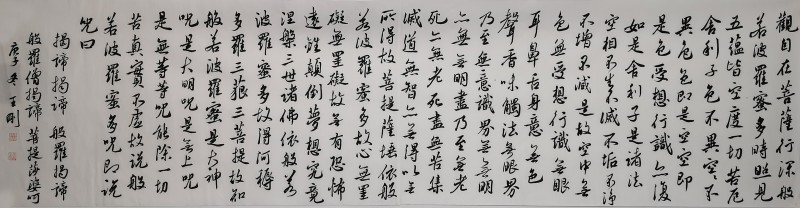 觀自在菩薩行深般
若波羅蜜多時照見
五蘊皆空度一切苦厄
舍利子色不異空空不
異色色即是空空即
是色受想行識亦復
如是舍利子是諸法
空相不生不滅不垢不淨
不增不減是故空中無
色無受想行識無眼
耳鼻舌身意無色
聲香味觸法無眼界
乃至無意識界無無明
亦無無明盡乃至無老
死亦無老死盡無苦集
滅道無智亦無得以無
所得故菩提薩埵依般
若波羅蜜多故心無罣
礙無罣礙故無有恐怖
遠離顛倒夢想究竟
涅槃三世諸佛依般若
波羅蜜多故得阿耨
多羅三藐三菩提故知
般若波羅蜜多是大神
咒是大明咒是無上咒
是無等等咒能除一切
苦真實不虛故說般
若波羅蜜多咒即說
咒曰
揭諦揭諦 般羅揭諦
般羅僧揭諦 菩提莎婆訶
庚子冬 王剛